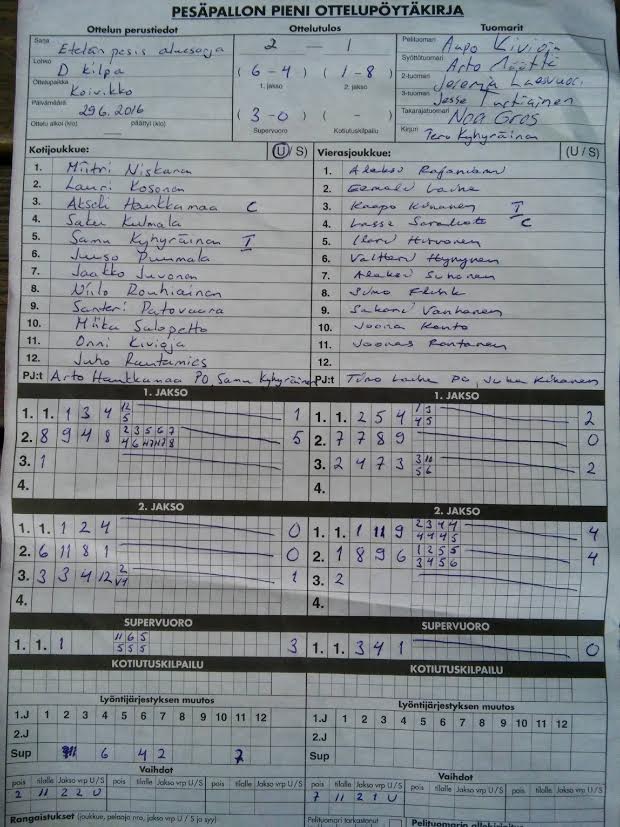 PESÄPALLON PIENI OTTELUPÖYTÄKIRJA
Ottelun perustiedot
Ottelutulos
Tuomarit
Sarja Etelän pesis aluesarja
Lohko D kilpa
Ottelupaikka Koivikko
Päivämäärä 29.6.2016
Ottelu alkoi (klo) päättyi (klo)
2 — 1
( 6 - 4 ) ( 1 - 8 )
1. jakso 2. jakso
( 3 - 0 ) ( - )
Supervuoro Kotiutuskilpailu
Pelituomari Aapo Kivioja
Syöttötuomari Arto Määttä
2-tuomari Jeremia
3-tuomari Jesse Turtiainen
Takarajatuomari Noa Gros
Kirjuri Tero Kyhyräinen
Kotijoukkue: (U / S)
1. Miitri Niskanen
2. Lauri Kosonen
3. Akseli Haukkamaa C
4. Saku Kulmala
5. Samu Kyhyräinen I
6. Juuso Puumala
7. Jaakko Juvonen
8. Niilo Rouhiainen
9. Santeri Patovaara
10. Miika Salopelto
11. Onni Kivioja
12. Juho Rautamies
PJ:t Arto Haukkamaa PO, Samu Kyhyräinen
Vierasjoukkue: (U / S)
1. Aleksi Rajaniemi
2. Eemeli Laine
3. Kaapo Kihanen I
4. Lasse C
5. Iivari Hirvonen
6. Valtteri Hynynen
7. Aleksi Suhonen
8. Simo Flink
9. Sakari Vanhanen
10. Joona Kanto
11. Joonas Rantanen
12.
PJ:t Timo Laine PO, Juha Kihanen
1. JAKSO
1. 1. 1 3 4 12 5 1
2. 8 9 4 8 2 3 5 6 7 5
3. 1
4.
1. JAKSO
1. 1. 2 5 4 1 3 4 5 2
2. 7 7 8 9 0
3. 2 4 7 3 3 10 5 6 2
4.
2. JAKSO
1. 1. 1 2 4 0
2. 6 11 8 1 0
3. 3 3 4 12 2 1
4.
2. JAKSO
1. 1. 1 11 9 2 3 4 4 4 4 4 5 4
2. 1 8 9 6 1 2 5 5 3 4 5 6 4
3. 2
4.
SUPERVUORO
1. 1. 1 11 6 5 5 5 5 3
SUPERVUORO
1. 1. 3 4 1 0
KOTIUTUSKILPAILU
KOTIUTUSKILPAILU
Lyöntijärjestyksen muutos
1.J 1 2 3 4 5 6 7 8 9 10 11 12
2.J
Sup 11 6 4 2 7
Lyöntijärjestyksen muutos
1.J 1 2 3 4 5 6 7 8 9 10 11 12
2.J
Sup
Vaihdot
pois tilalle Jakso vrp U / S pois tilalle Jakso vrp U / S pois tilalle Jakso vrp U / S
2 11 2 2 U
Vaihdot
pois tilalle Jakso vrp U / S pois tilalle Jakso vrp U / S pois tilalle Jakso vrp U / S
7 11 2 1 U
Rangaistukset (joukkue, pelaaja nro, jakso vrp U / S ja syy):
Pelituomari tarkastanut